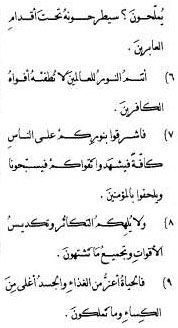 يُملّحونَ ؟ سيطرحونهُ تحتَ أقدامِ
العابرينَ .
٦) أنتمُ النويرُ للعالمينَ لا تُطفئهُ أفواهُ
الكافرينَ .
٧) فاشرقوا بنويركمْ على الناسِ
كافّةً فيشهدوا تقواكمْ فيسبّحونا
ويلحقوا بالمؤمنينَ .
٨) ولا يُلهكمُ التكاثرُ وتكديسُ
الأقواتِ وتجميعُ ما تشتهونَ .
٩) فالحياةُ أعزُّ منَ الغذاءِ والجسدُ أغلى منَ
الكِساءِ وما تملكونَ .